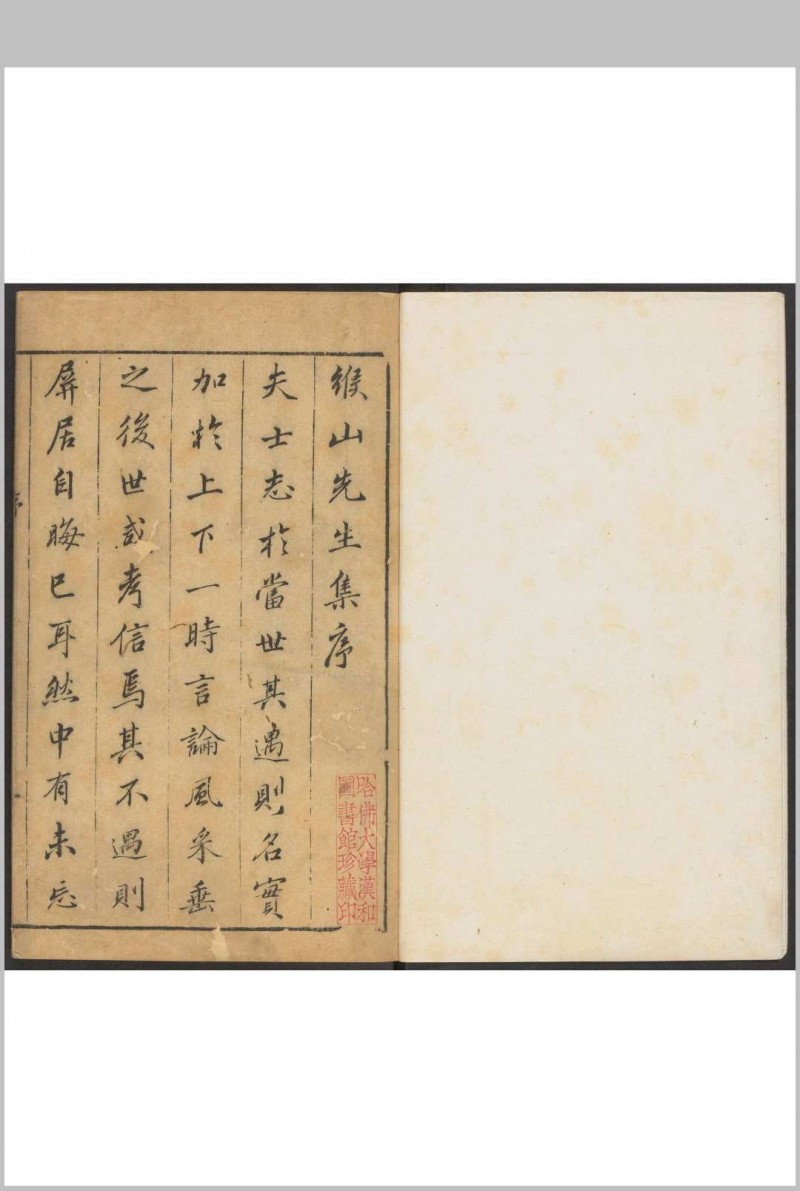 緱山先生集序
夫士志於當世其遇則名實
加於上下一時言論風采垂
之後世咸考信焉其不遇則
屏居自晦已耳然中有未忘
序
哈佛大學漢和
圖書館珍藏印